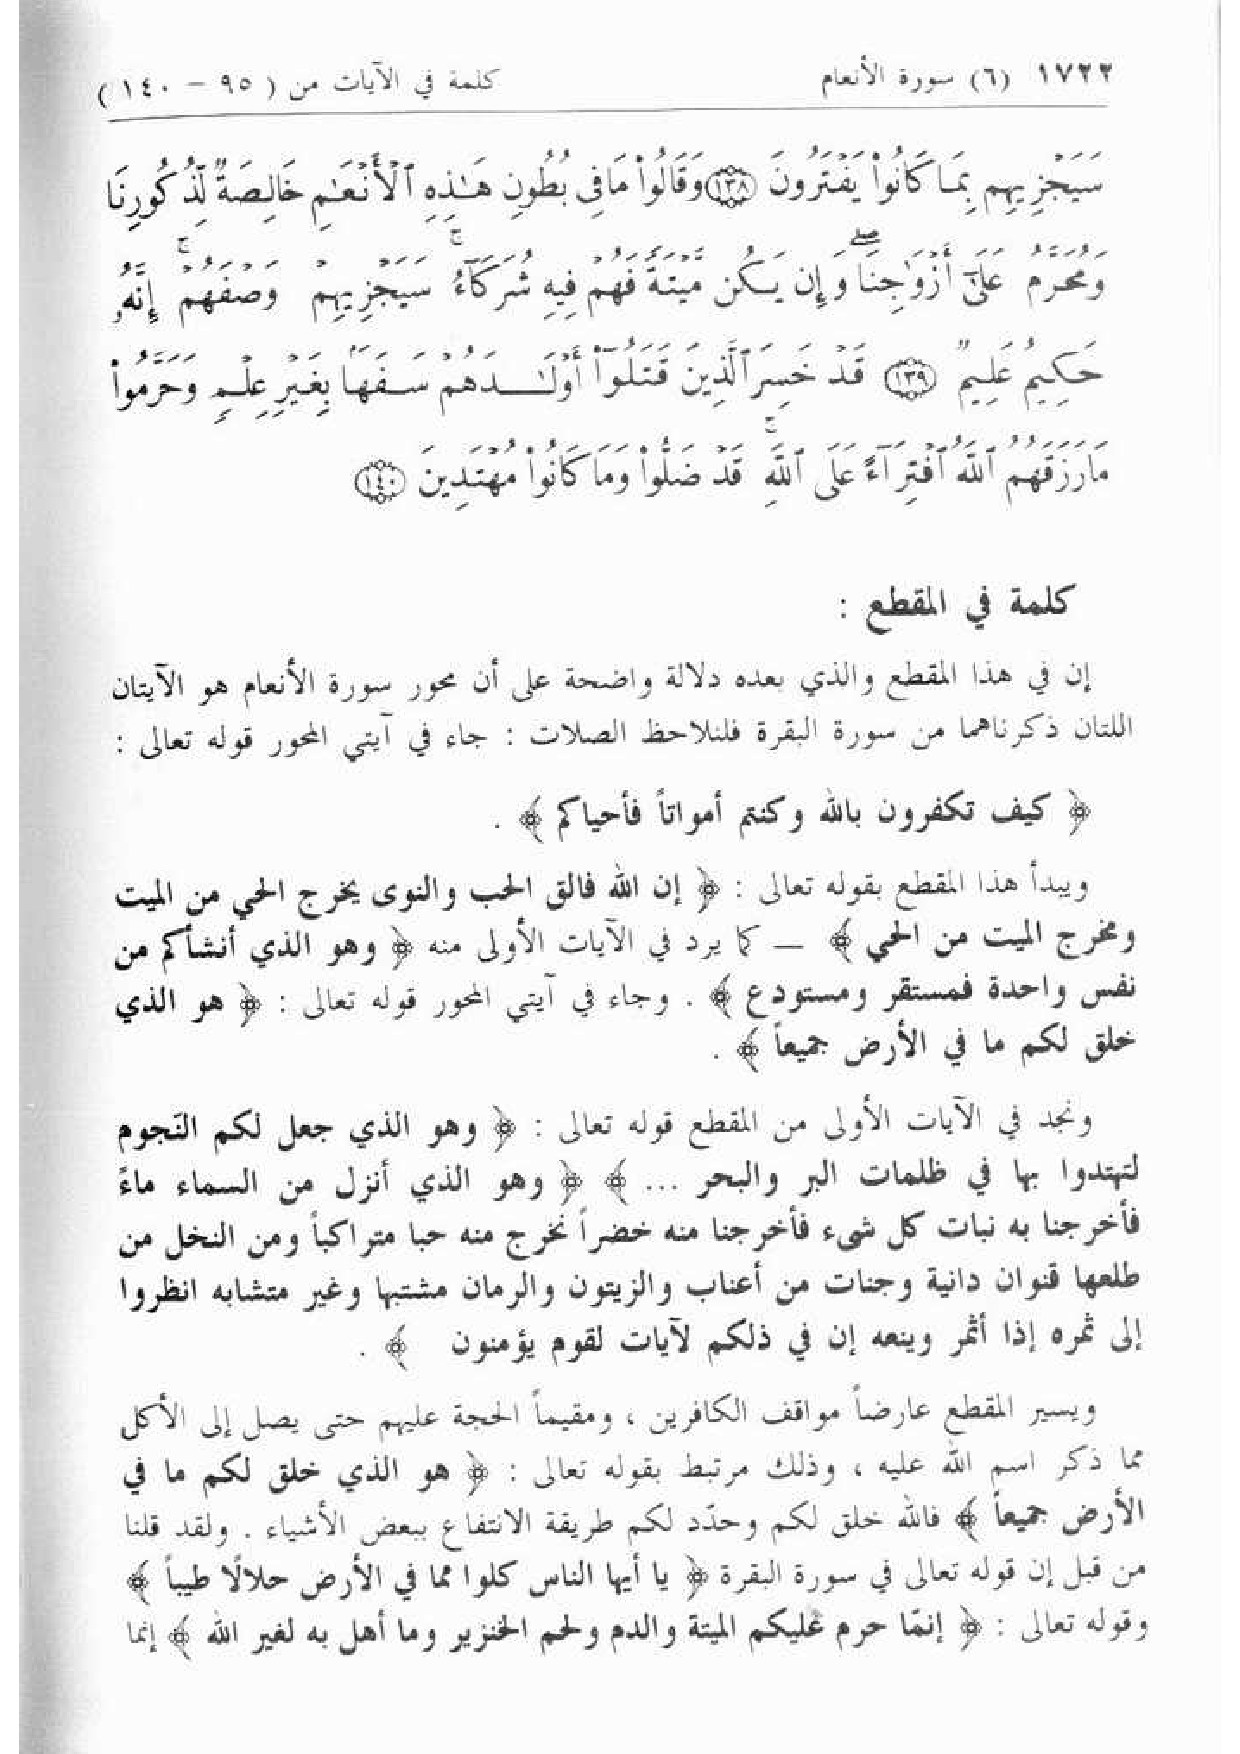 ١٧٢٢ (٦) سورة الأنعام كلمة في الآيات من ( ٩٥ – ١٤٠ )
سَيَجْزِيهِم بِمَا كَانُوا۟ يَفْتَرُونَ ﴿١٣٨﴾ وَقَالُوا۟ مَا فِى بُطُونِ هَـٰذِهِ ٱلْأَنْعَـٰمِ خَالِصَةٌ لِّذُكُورِنَا
وَمُحَرَّمٌ عَلَىٰٓ أَزْوَٰجِنَا ۖ وَإِن يَكُن مَّيْتَةً فَهُمْ فِيهِ شُرَكَآءُ ۚ سَيَجْزِيهِمْ وَصْفَهُمْ ۚ إِنَّهُۥ
حَكِيمٌ عَلِيمٌ ﴿١٣٩﴾ قَدْ خَسِرَ ٱلَّذِينَ قَتَلُوٓا۟ أَوْلَـٰدَهُمْ سَفَهًۢا بِغَيْرِ عِلْمٍ وَحَرَّمُوا۟
مَا رَزَقَهُمُ ٱللَّهُ ٱفْتِرَآءً عَلَى ٱللَّهِ ۚ قَدْ ضَلُّوا۟ وَمَا كَانُوا۟ مُهْتَدِينَ ﴿١٤٠﴾
كلمة في المقطع :
إن في هذا المقطع والذي بعده دلالة واضحة على أن محور سورة الأنعام هو الآيتان
اللتان ذكرناهما من سورة البقرة فلنلاحظ الصلات : جاء في آيتي المحور قوله تعالى :
﴿ كيف تكفرون بالله وكنتم أمواتاً فأحياكم ﴾ .
ويبدأ هذا المقطع بقوله تعالى : ﴿ إن الله فالق الحب والنوى يخرج الحي من الميت
ومخرج الميت من الحي ﴾ – كما يرد في الآيات الأولى منه ﴿ وهو الذي أنشأكم من
نفس واحدة فمستقر ومستودع ﴾ . وجاء في آيتي المحور قوله تعالى : ﴿ هو الذي
خلق لكم ما في الأرض جميعاً ﴾ .
ونجد في الآيات الأولى من المقطع قوله تعالى : ﴿ وهو الذي جعل لكم النّجوم
لتهتدوا بها في ظلمات البر والبحر ... ﴾ ﴿ وهو الذي أنزل من السماء ماءً
فأخرجنا به نبات كل شيء فأخرجنا منه خضراً نخرج منه حبا متراكباً ومن النخل من
طلعها قنوان دانية وجنات من أعناب والزيتون والرمان مشتبها وغير متشابه انظروا
إلى ثمره إذا أثمر وينعه إن في ذلكم لآيات لقوم يؤمنون ﴾ .
ويسير المقطع عارضاً مواقف الكافرين ، ومقيماً الحجة عليهم حتى يصل إلى الأكل
مما ذكر اسم الله عليه ، وذلك مرتبط بقوله تعالى : ﴿ هو الذي خلق لكم ما في
الأرض جميعاً ﴾ فالله خلق لكم وحدّد لكم طريقة الانتفاع ببعض الأشياء . ولقد قلنا
من قبل إن قوله تعالى في سورة البقرة ﴿ يا أيها الناس كلوا مما في الأرض حلالًا طيباً ﴾
وقوله تعالى : ﴿ إنمّا حرم عليكم الميتة والدم ولحم الخنزير وما أهل به لغير الله ﴾ إنما